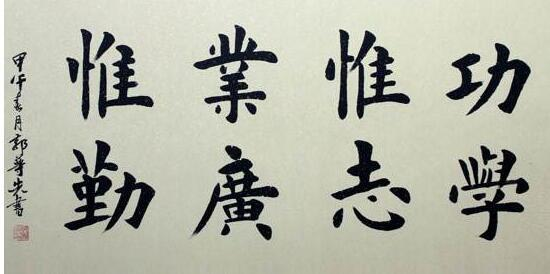 功學
惟志
業廣
惟勤
甲午春月郭先書